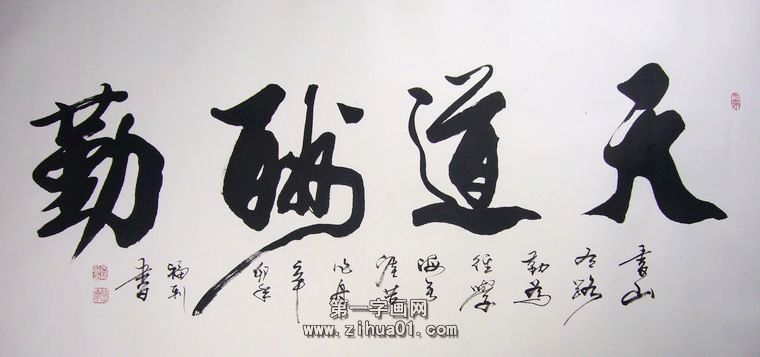 天道酬勤
書山
有路
勤為
徑學
海無
涯苦
作舟
辛
卯年
福利
書
第一字画网
www.zihua01.com